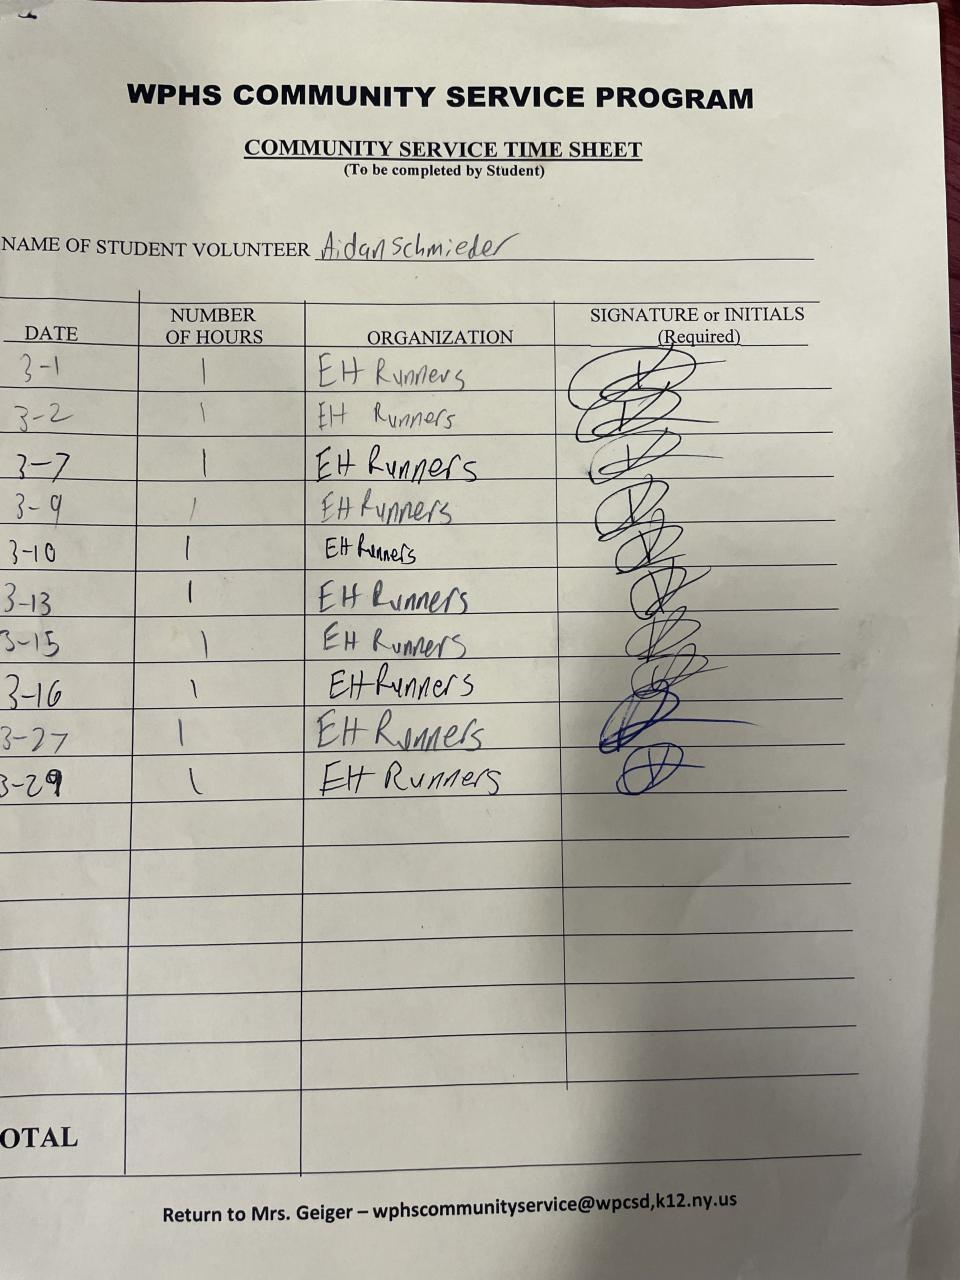 WPHS COMMUNITY SERVICE PROGRAM
COMMUNITY SERVICE TIME SHEET
(To be completed by Student)
NAME OF STUDENT VOLUNTEER Aidan Schmieder
DATE NUMBER OF HOURS ORGANIZATION SIGNATURE or INITIALS (Required)
3-1 1 EH Runners
3-2 1 EH Runners
3-7 1 EH Runners
3-9 1 EH Runners
3-10 1 EH Runners
3-13 1 EH Runners
3-15 1 EH Runners
3-16 1 EH Runners
3-27 1 EH Runners
3-29 1 EH Runners
OTAL
Return to Mrs. Geiger – wphscommunityservice@wpcsd,k12.ny.us